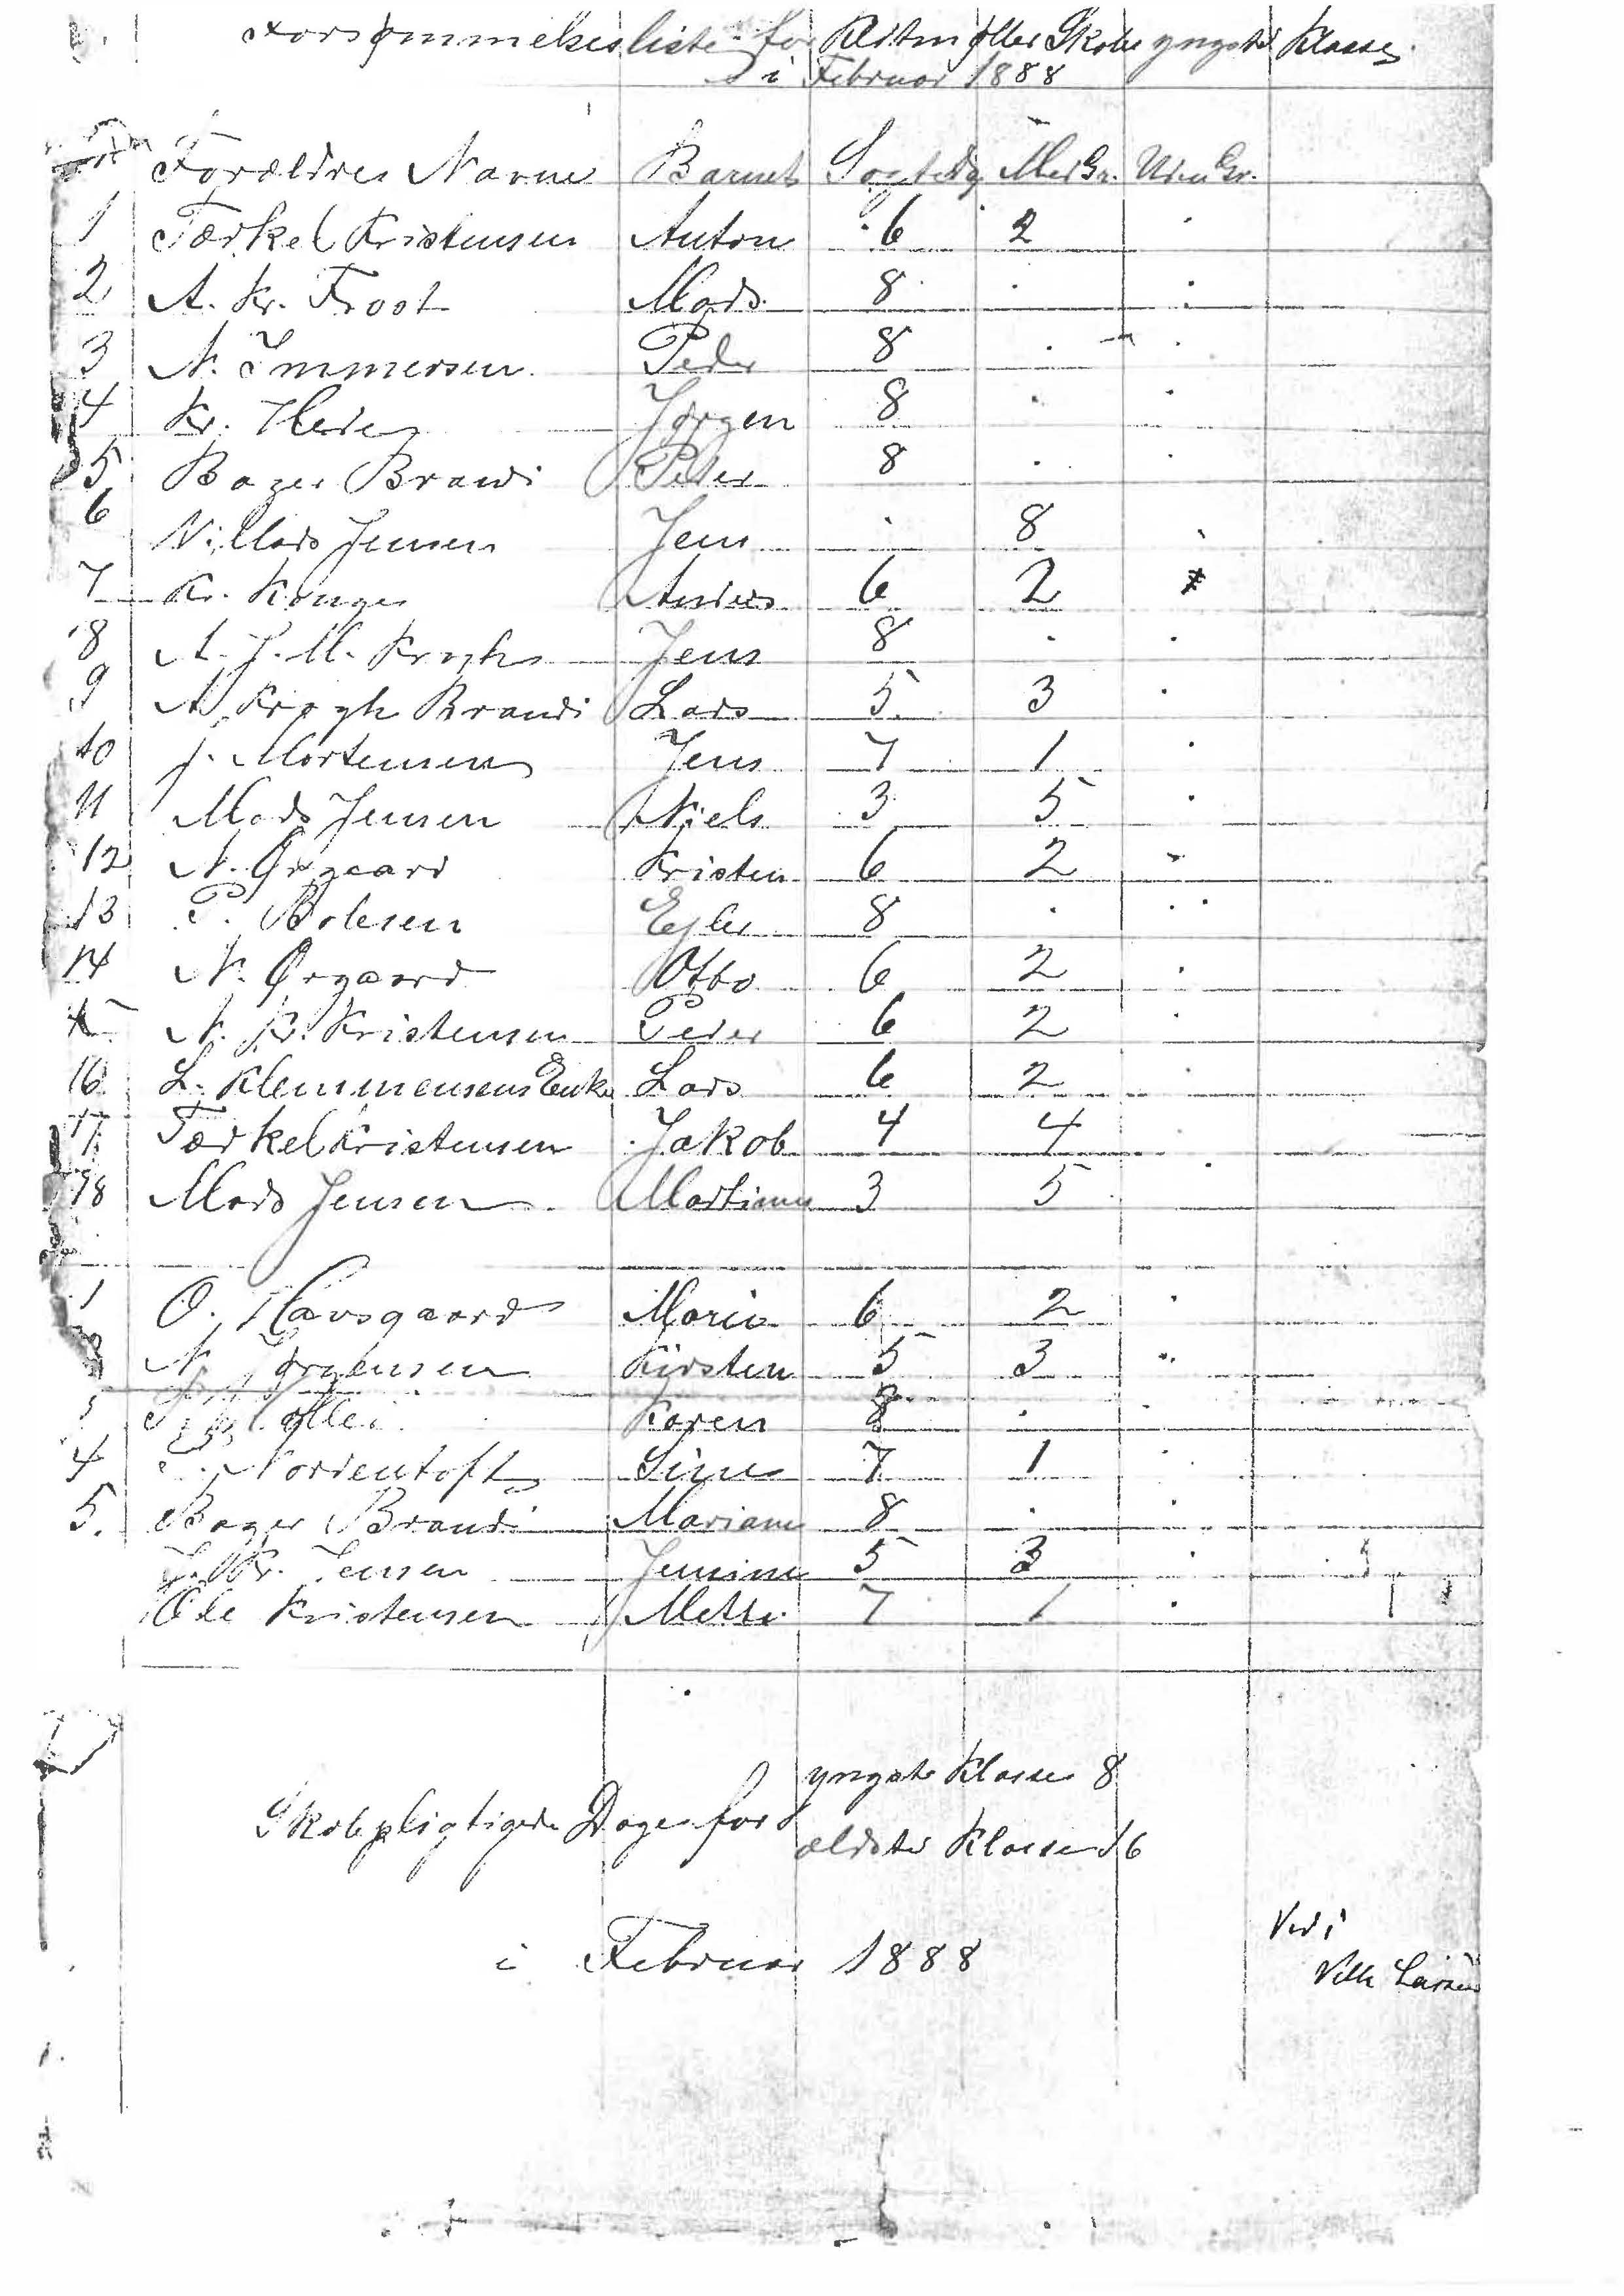 Forsømmelsesliste for Klitmøller Skoles yngste Klasse
i Februar 1888
Forældres Navne Barnets Søgt Dg Med Gr. Uden Gr.
1 Tærkel Kristensen Anton 6 2 .
2 A. Kr. Frost Mads 8 . .
3 N. Immersen Peder 8 . .
4 Kr. Hede Jørgen 8 . .
5 Bager Brandi Peter 8 . .
6 Villads Jensen Jens . 8 .
7 Kr. Konge Anders 6 2
8 A. J. M. Krogh Jens 8 . .
9 A Krogh Brandi Lars 5 3 .
10 J. Mortensen Jens 7 1 .
11 Mads Jensen Niels 3 5 .
12 N. Ørgaard Kristen 6 2 .
13 P. Bolesen Ejler 8 . .
14 N. Ørgaard Otto 6 2 .
15 N. Kr. Kristensen Peder 6 2 .
16 L. Klemmensens Enke Lars 6 2 .
17 Tærkel Kristensen Jakob 4 4 .
18 Mads Jensen Martinus 3 5 .
1 O. Havsgaard Marie 6 2 .
N. Jørgensen Kirsten 5 3 .
Møller Karen 8 . .
4 Nordentoft Sine 7 1 .
5. Bager Brandi Mariane 8 . .
J. Kr. Jensen Jensine 5 3 .
Ole Kristensen Mette 7 1 .
yngste Klasse 8
Skolepligtige Dage for
ældste Klasse 16
i Februar 1888
Vilh Larsen